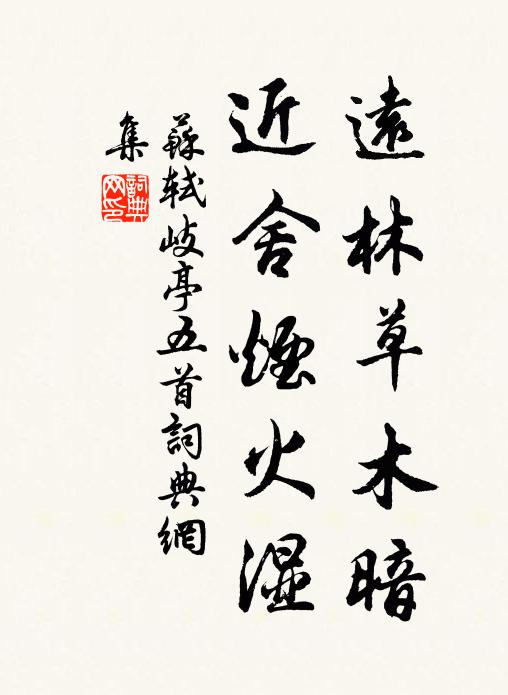 遠林草木暗
近舍煙火濕
蘇軾岐亭五首詞典網
集
詞典
网印